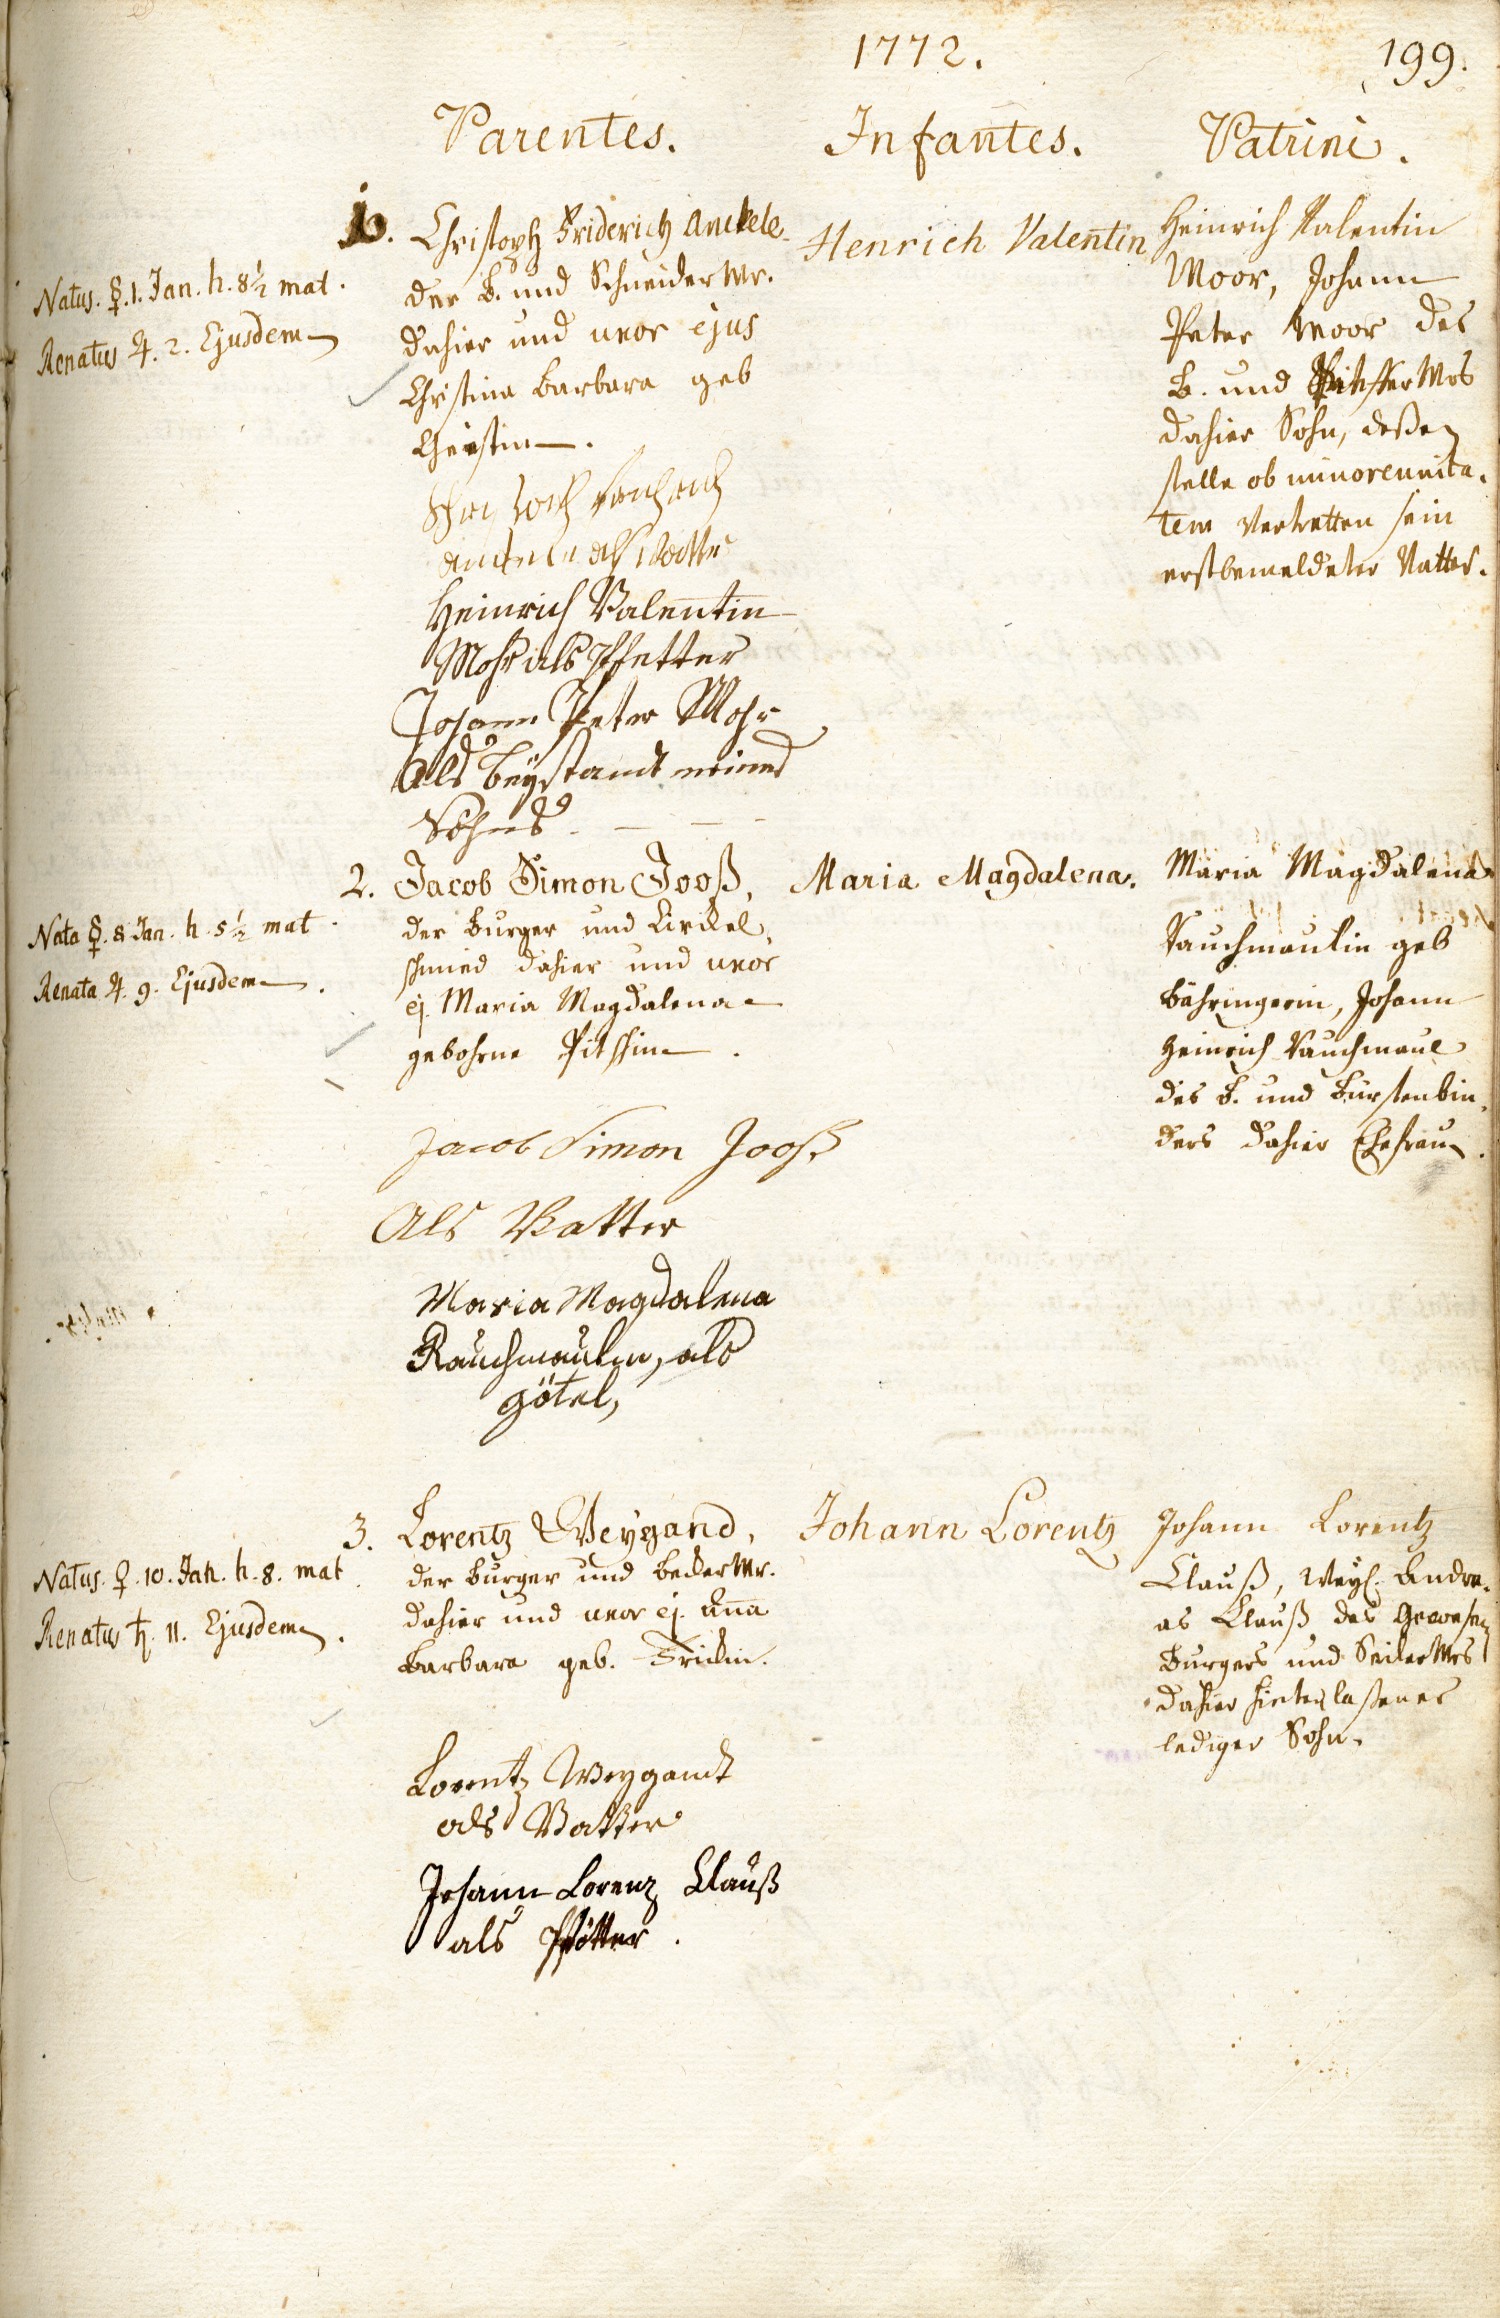 1772.
199.
Parentes.
Infantes.
Patrini.
1.
Christoph Friderich Anckele
der B. und Schneider Mr.
dahier und uxor ejus
Christina Barbara geb
Natus. ☿. 1. Jan. h. 8½ mat.
Renatus ♃. 2. Ejusdem
als Vatter
Heinrich Valentin
Mohr als Pfetter
Johann Peter Mohr
als beystandt meines
Sohns
Henrich Valentin
Heinrich Valentin
Moor, Johann
Peter Moor des
B. und Mrs
dahier Sohn, deßen
stelle ob minorennita-
tem vertretten sein
erstbemeldeter Vatter.
2.
Jacob Simon Jooß,
der Burger und Zirckel-
schmied dahier und uxor
ej. Maria Magdalena
gebohrne
Nata ☿. 8 Jan. h. 5½ mat
Renata ♃. 9. Ejusdem.
Jacob Simon Jooß
Als Vatter
Maria Magdalena
Rauchmaulin, als
götel,
Maria Magdalena.
Maria Magdalena
Rauchmaulin geb
Bähringerin, Johann
Heinrich Rauchmaul
des B. und Bürstenbin-
ders dahier Ehefrau.
3.
Lorentz Weygand,
der Burger und Becker Mr.
dahier und uxor ej. Anna
Barbara geb. Frickin.
Natus. ♀. 10. Jan. h. 8. mat
Renatus ♄. 11. Ejusdem.
Lorentz Weygandt
als Vatter
Johann Lorenz Clauß
als Pfetter.
Johann Lorentz
Johann Lorentz
Clauß, Weyl. Andre-
as Clauß des gewesen
Burgers und Seiler Mrs
dahier hinterlaßener
lediger Sohn.